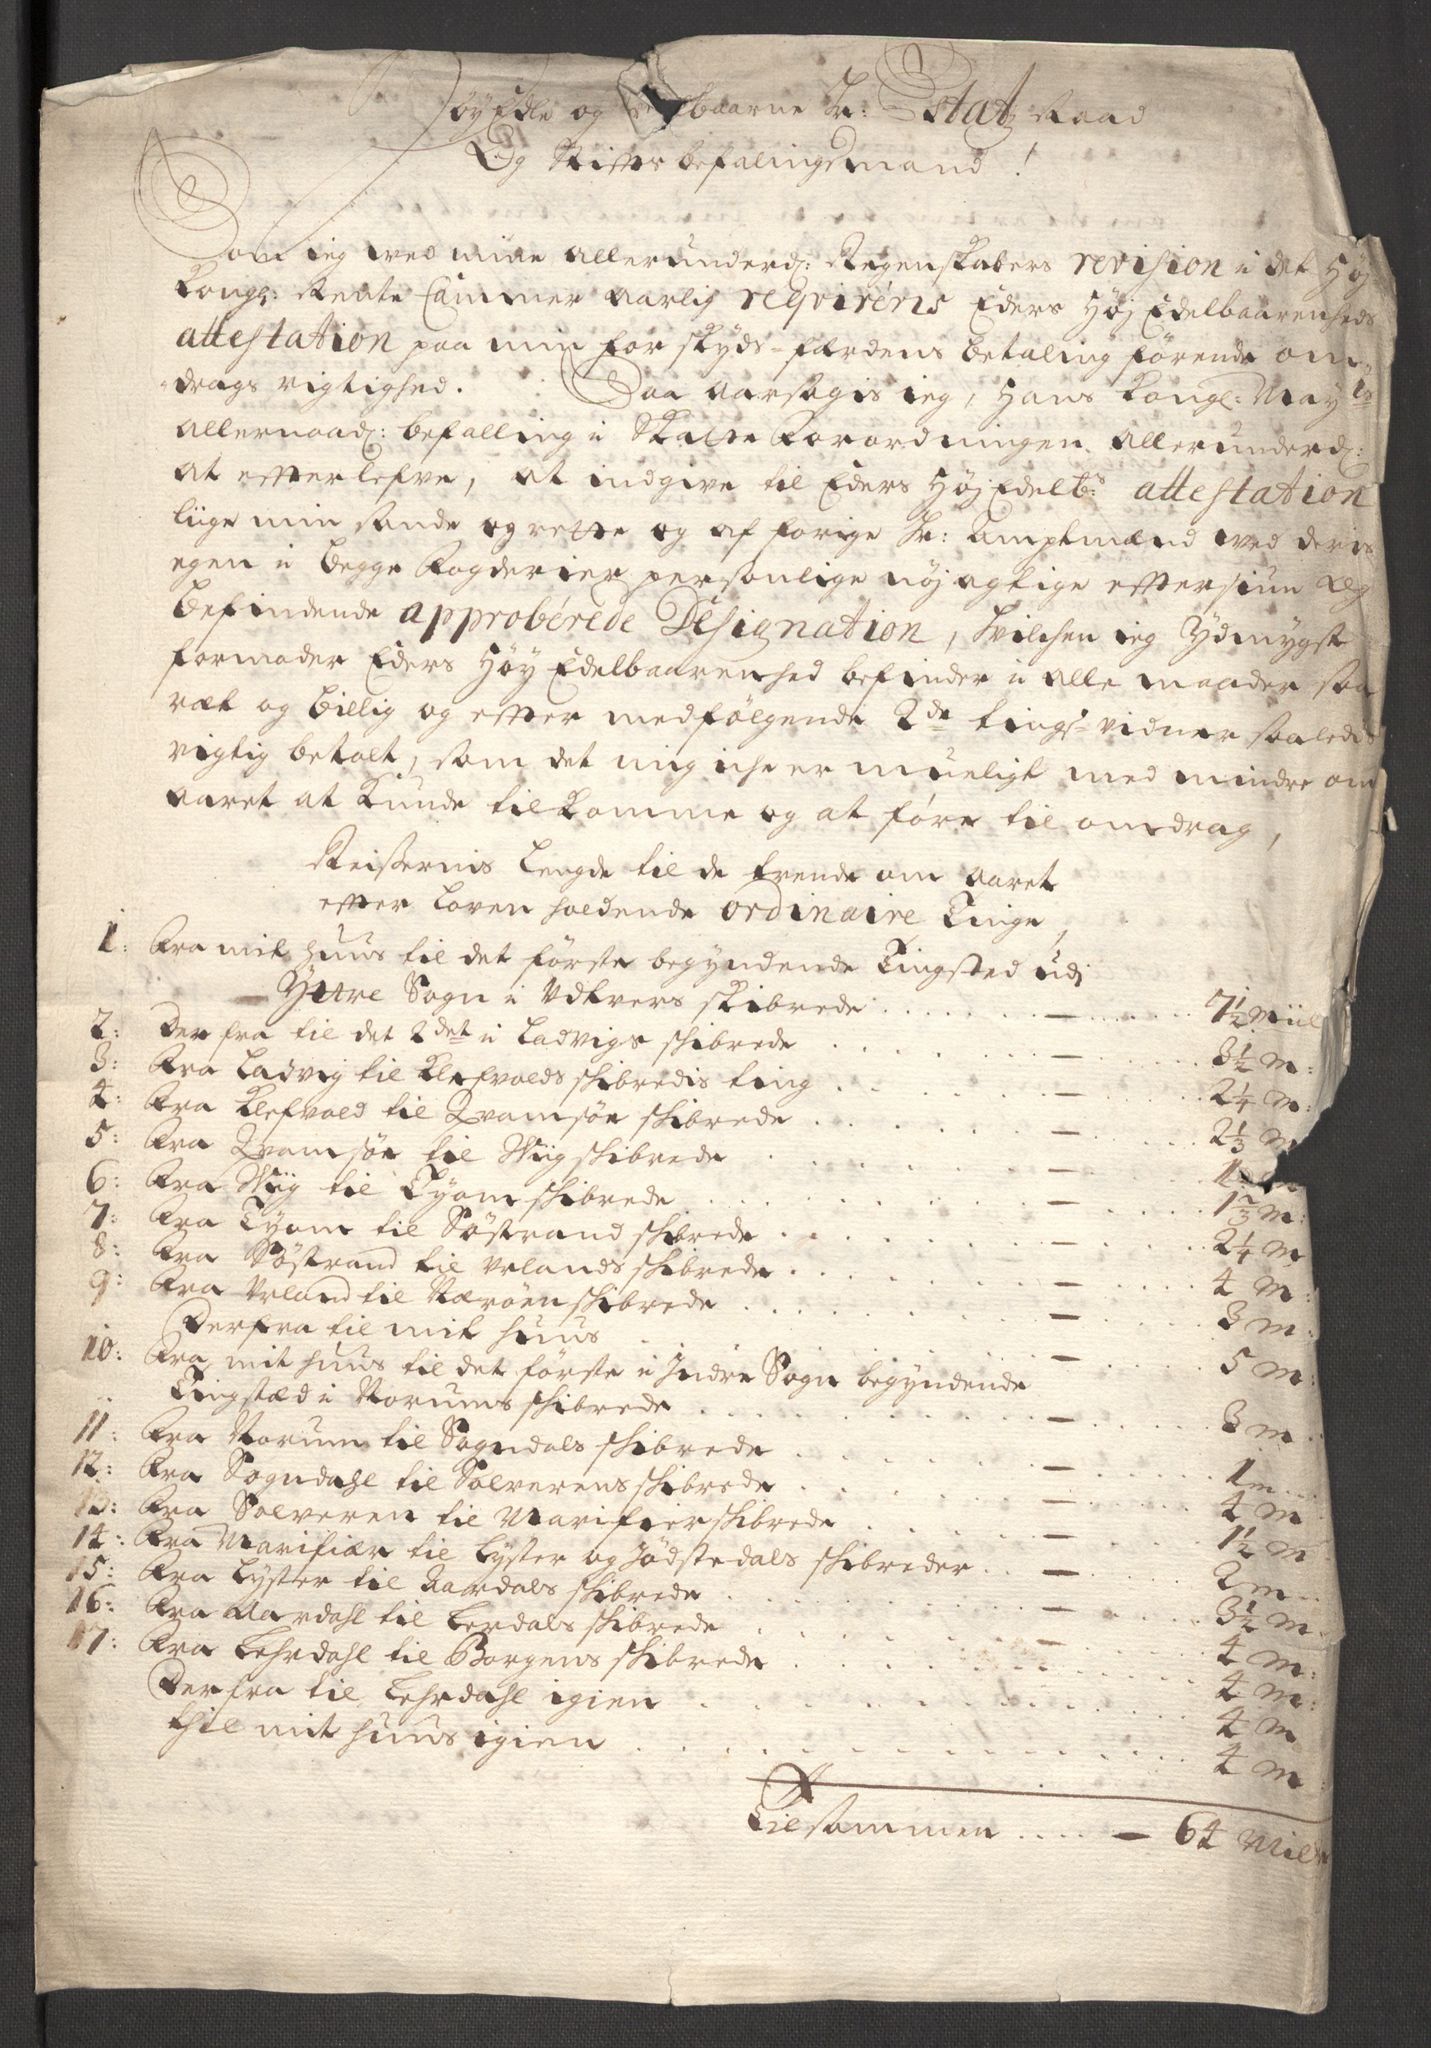 Høy Edle og baarne Hr: Estatz Raad
Og Stifts befalingsmand!
Som ieg ved mine allerunderd: Regenskabers revision i det Høj
Kongl: Rente Cammer aarlig reqvireris Eders Høj Edelbaarenheds
attestation paa min for skyds-færdens betaling førende om-
drags rigtighed. Saa aarsagis ieg, Hans Kongl: May:ts
allernaad: befalling i Skatte Forordningen allerunderd:
at efterlefve, at indgive til Eders Høj Edelb:s attestation
liige min sande og rette og af forige Hr: Amptmænd ved deris
egen i begge Fogderier personlige nøjagtige eftersiun og
befindende approberede Designation, hvilchen ieg Ydmygst
formoder Eders Høy Edelbaarenhed befinder i alle maader saa
ræt og billig og efter medfølgende 2de tings-vidner saaledis
rigtig betalt, som det mig iche er mueligt med mindre om
aaret at kunde tilkomme og at føre til omdrag,
Reisernis Lengde til de trende om aaret
efter Loven holdende ordinaire Tinge,
1: Fra mit huus til det første begyndende Tingsted udj
Yttre Sogn i Udtvers skibrede . . . . — . . . 7½ Miil
2: Der fra til det 2det i Ladvigs schibrede . . . — . . . 3½ m:
3: Fra Ladvig til Klefvolds schibredis ting . . . — . . . 2¼ m:
4: Fra Klefvold til Qvamsøe schibrede . . . — . . . 2⅓ m
5: Fra Qvamsøe til Wiig schibrede . . . — . . . 1
6: Fra Wiig til Tyom schibrede . . . — . . . 1⅔ m:
7: Fra Tyom til Söstrand schibrede . . . — . . . 2¼ m
8: Fra Söstrand til Urlands schibrede . . . — . . . 4 m:
9: Fra Urland til Nærøen schibrede . . . — . . . 3 m:
Derfra til mit huus . . . — . . . 5 m:
10: Fra mit huus til det første i Indre Sogn begyndende
Tingstæd i Norums schibrede . . . — . . . 3 m
11: Fra Norum til Sogndals schibrede . . . — . . . 1 m
12: Fra Sogndahl til Solverens schibrede . . . — . . . 4 m
13: Fra Solveren til Marifier schibrede . . . — . . . 1½ m
14: Fra Marifiær til Lyster og Jødstedals schibreder . . — . . . 2 m
15: Fra Lyster til Aardals schibrede . . . — . . . 3½ m
16: Fra Aardahl til Lerdals schibrede . . . — . . . 4 m:
17: Fra Lehrdahl til Borgens schibrede . . . 4 m:
Derfra til Lehrdahl igien . . . 4 m
thil mit huus igien . . . 4 m:
Tilsammen . . . . — 64 Mile